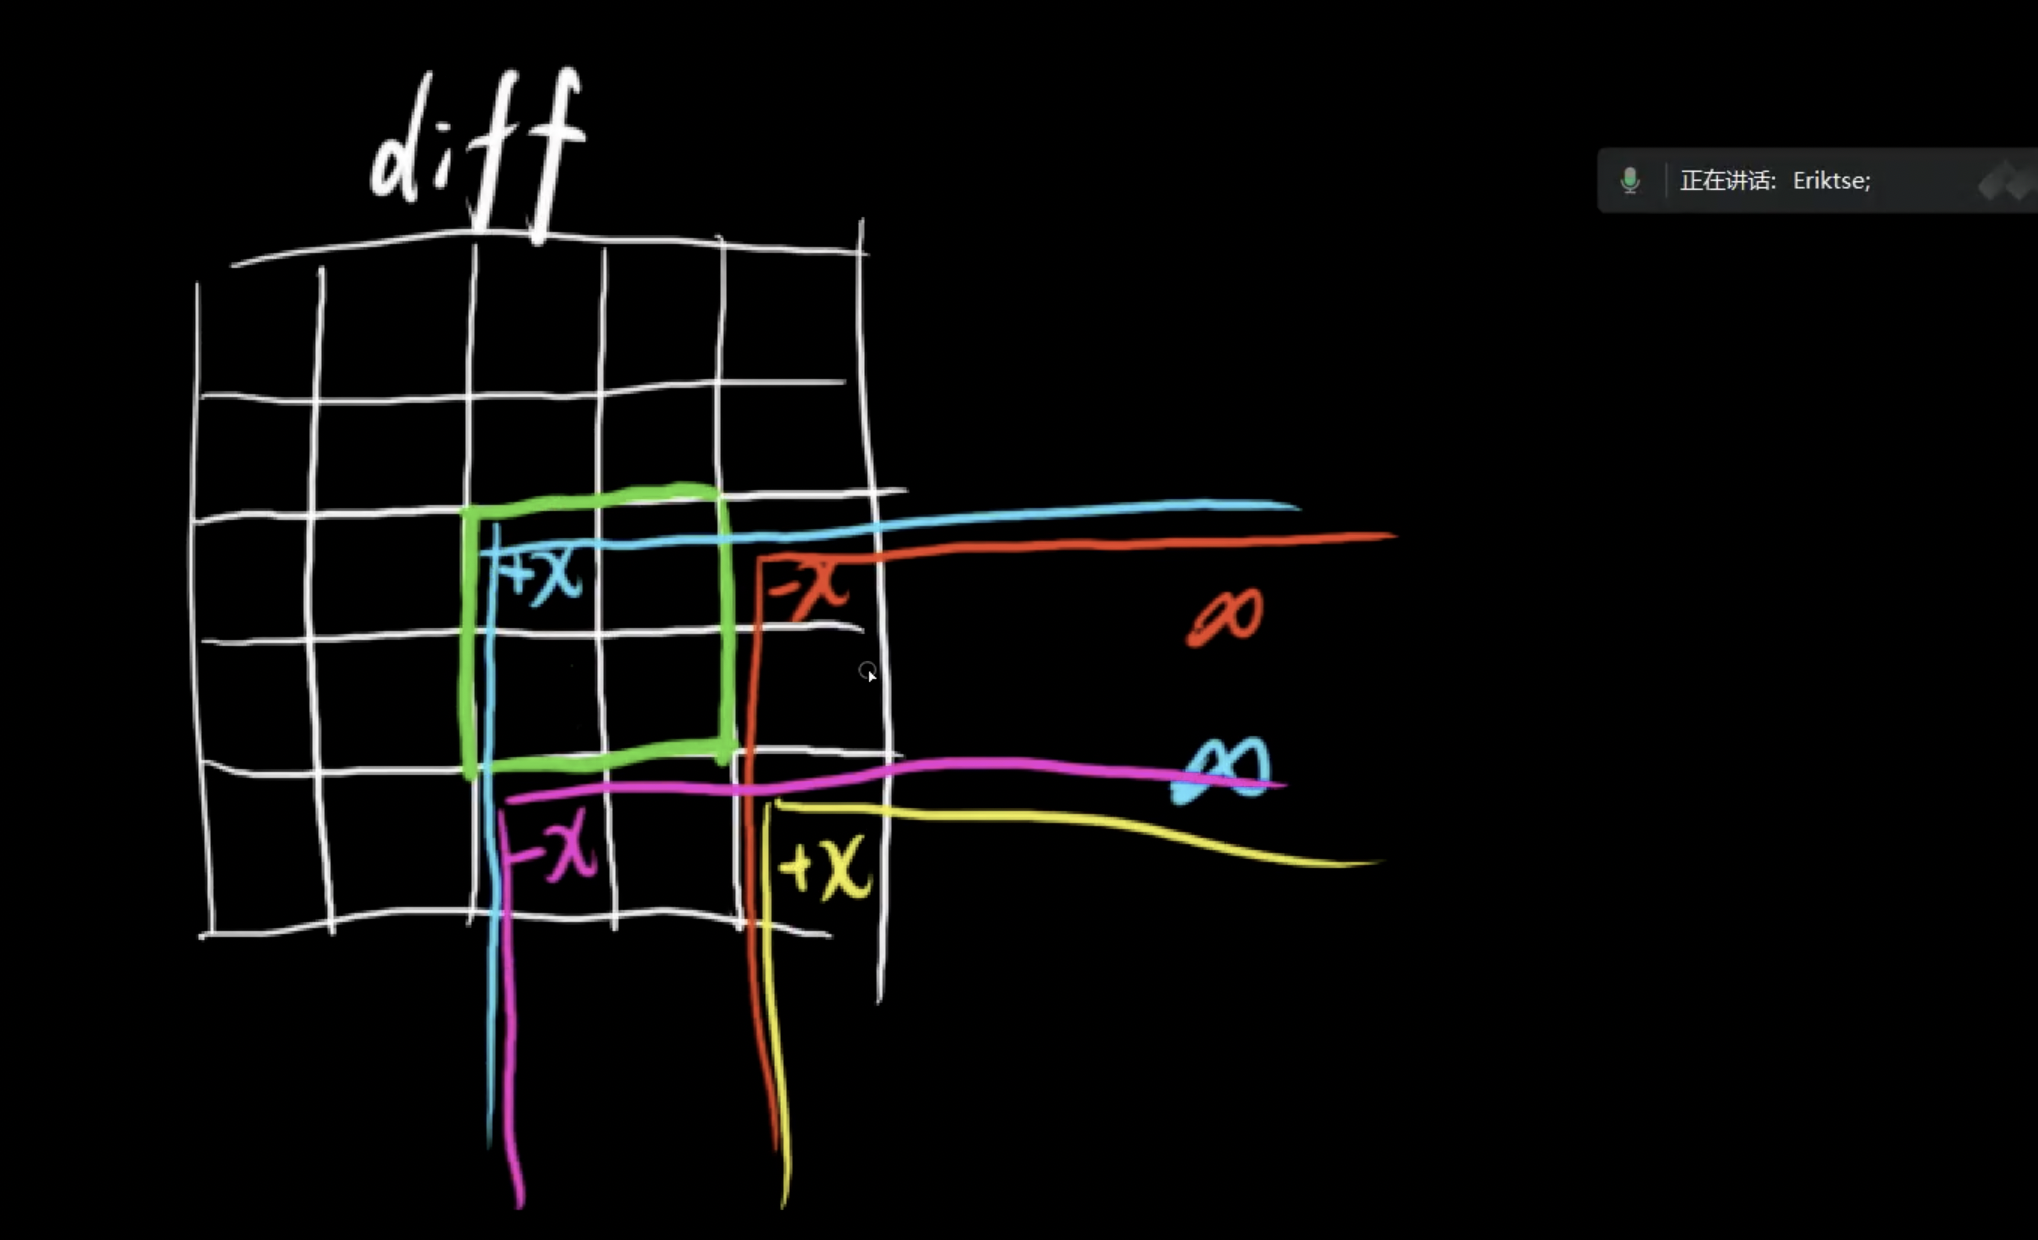 diff
正在讲话: Eriktse;
+x
-x
∞
∞
-x
+x